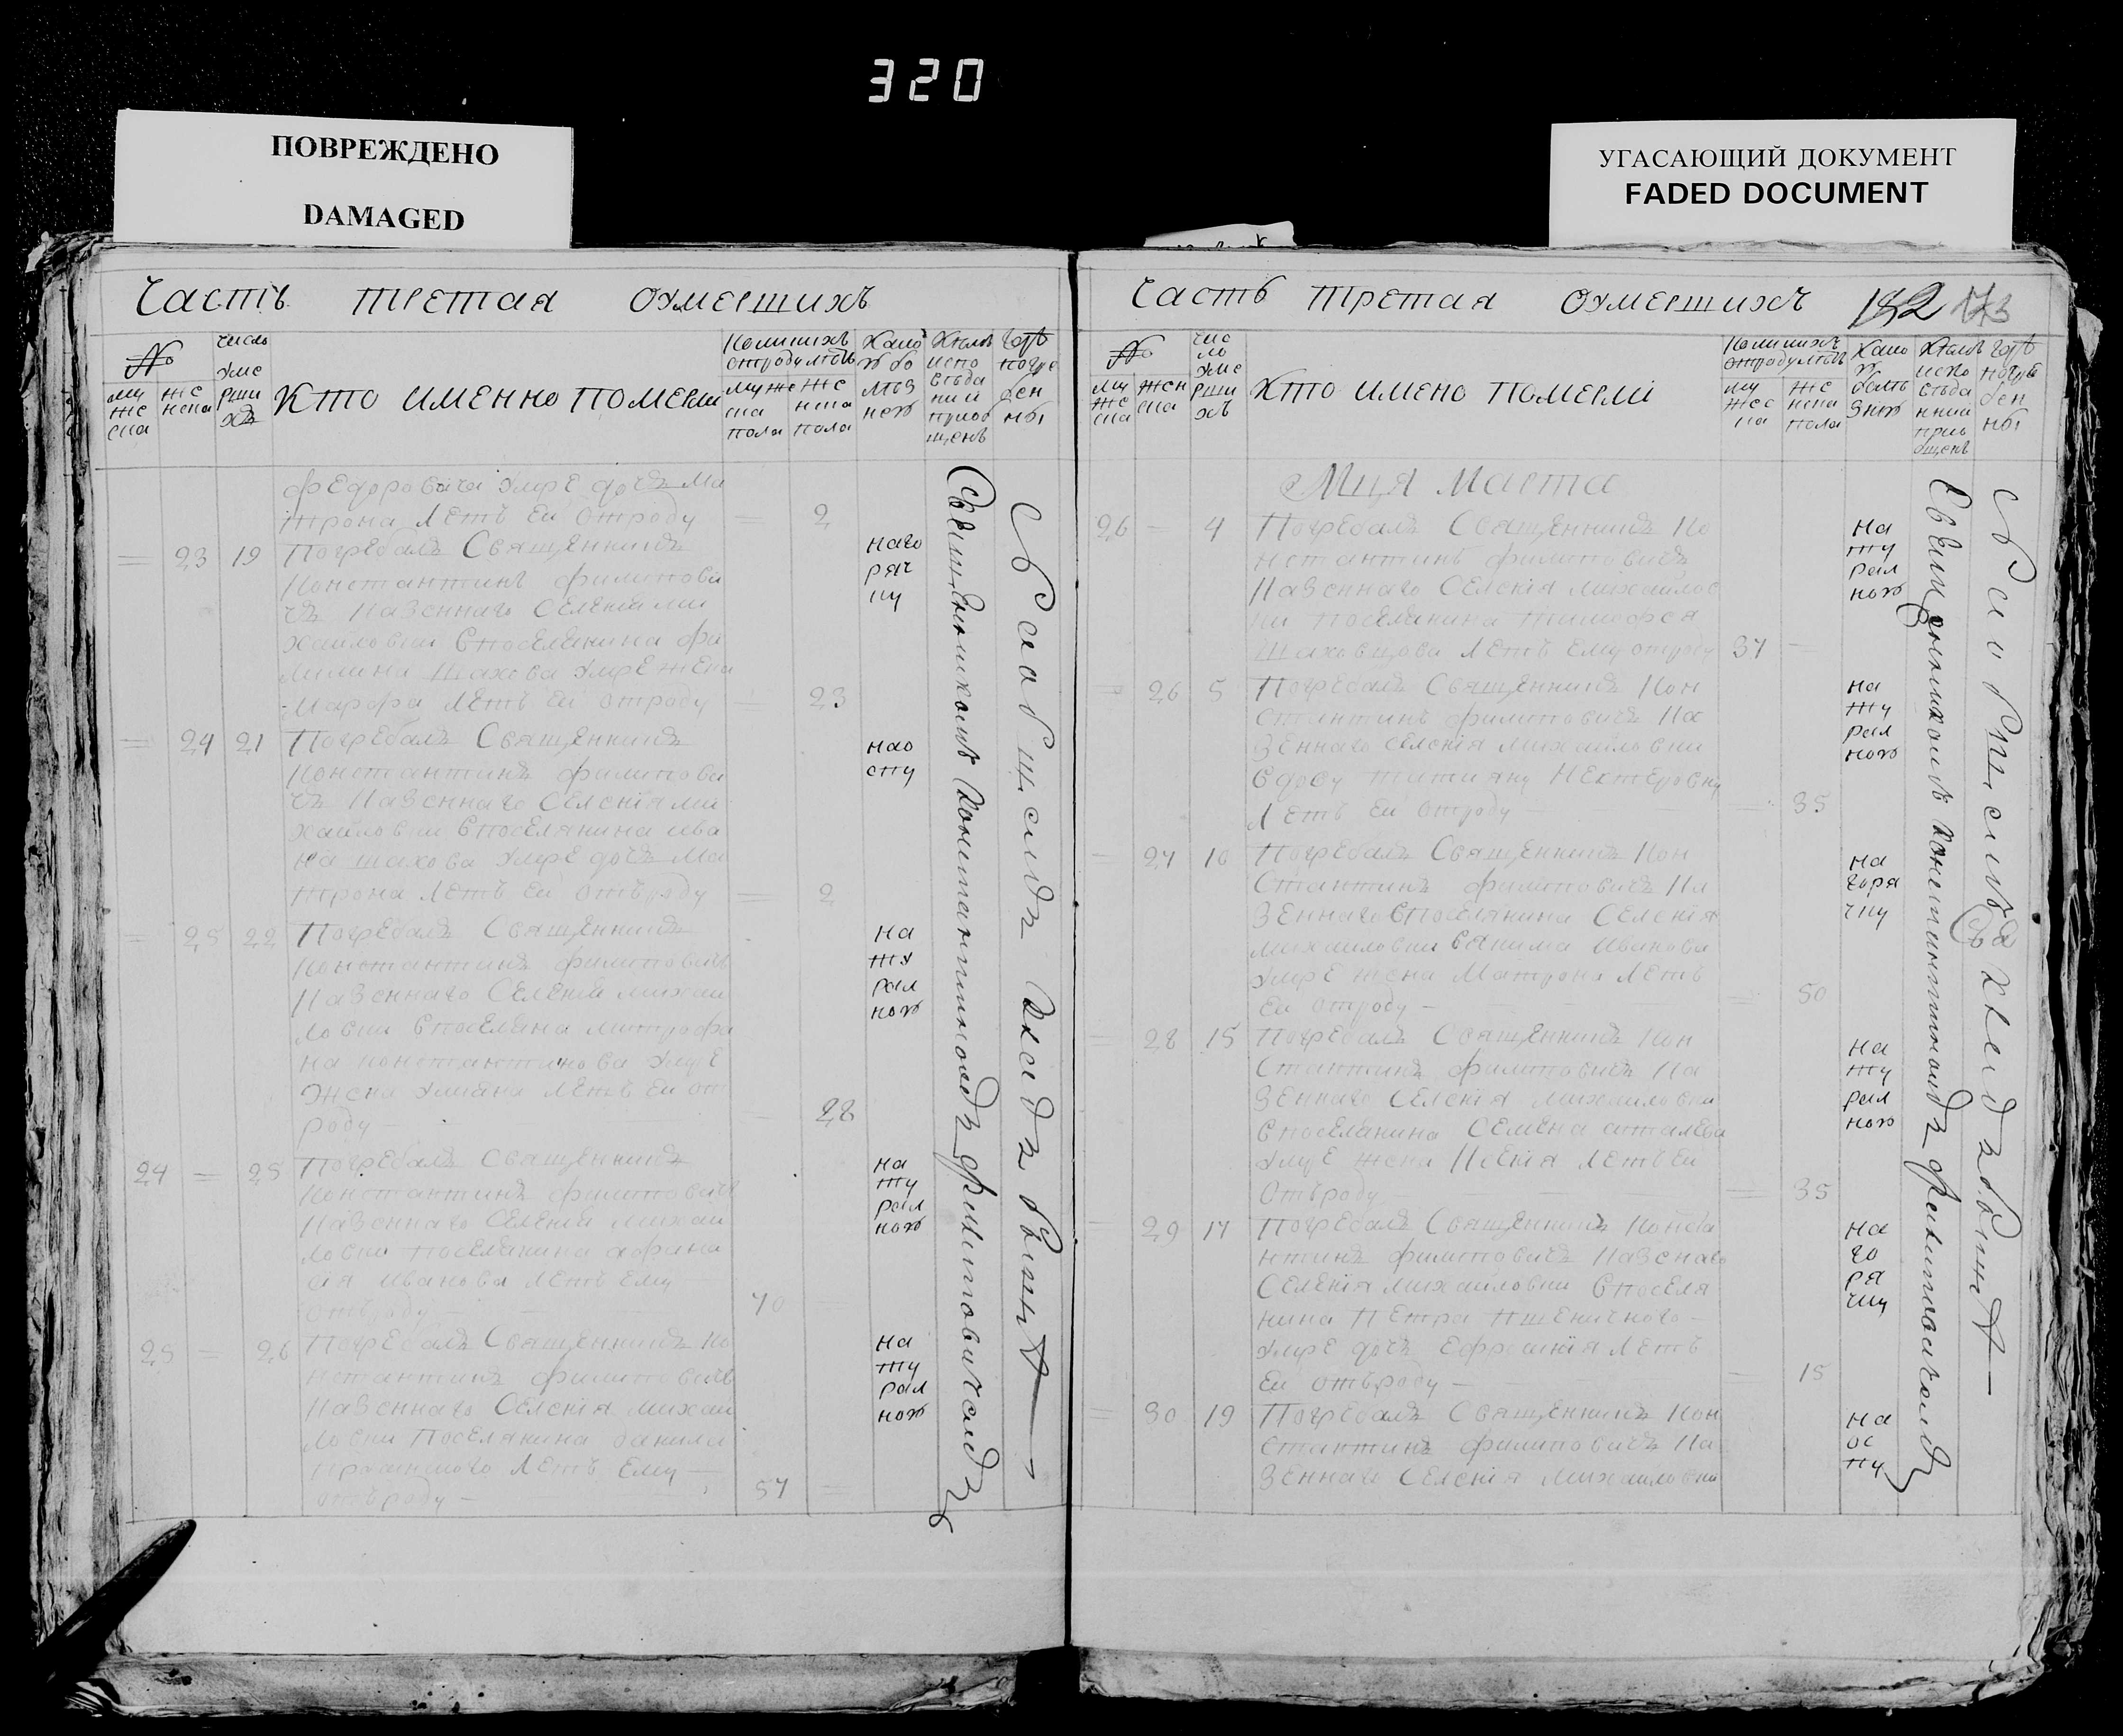 320
ПОВРЕЖДЕНО
DAMAGED
УГАСАЮЩИЙ ДОКУМЕНТ
FADED DOCUMENT
Часть третая оумершихъ
№
число
уме
рши
хъ
му
же
ска
же
нска
Кто именно померли
Колишхъ
отроду летъ
муже
ска
пола
же
нска
пола
Какою
бо
лез
нею
Кемъ
испо
веда
ни и
приоб
щены
Где
погре
бен
ны
Федоровича умре дочъ Ма
трона летъ ей отроду = 2
= 23 19 Погребалъ Священникъ
Константинъ Филипови
чъ Казеннаго Селения Ми
хайловки Споселянина Фи
Шахова умре жена
Марфа летъ ей отроду = 23
наго
ряч
ку
= 24 21 Погребалъ Священникъ
Константинъ Филипови
чъ Казеннаго Селения Ми
хайловки Споселянина Ива
на Шахова умре дочъ Ма
трона летъ ей отъроду = 2
нао
спу
= 25 22 Погребалъ Священникъ
Константинъ Филиповичъ
Казеннаго Селения Михаи
ловки Споселяна Митрофа
на Константинова умре
жена Улияна летъ ей от
роду — 28
на
ту
рал
ною
24 = 25 Погребалъ Священникъ
Константинъ Филиповичъ
Казеннаго Селения Михаи
ловки поселянина Афана
сия Иванова летъ ему
отъроду — 70 =
на
ту
рал
ною
25 = 26 Погребалъ Священникъ Ко
нстантинъ Филиповичъ
Казеннаго Селения Михаи
ловки Поселянина Данила
летъ ему
отъроду — 57 =
на
ту
рал
ною
Священникомъ Константиномъ Филиповичемъ
Часть третая оумершихъ 182 173
№
чис
ло
уме
рши
хъ
му
же
ска
жен
ска
Кто имено померли
Колишхъ
отроду летъ
му
жес
ка
же
нска
пола
Какою
болѣ
знею
Кемъ
испо
веда
ннии
прио
бщены
Где
погре
бен
ны
Мця Марта
26 = 4 Погребалъ Священникъ Ко
нстантинъ Филиповичъ
Казеннаго Селения Михайлов
ки поселянина Тимофея
Шаховцова летъ ему отроду 37 —
на
ту
рал
ною
= 26 5 Погребалъ Священникъ Кон
стантинъ Филиповичъ Ка
зеннаго Селения Михайловки
вдову Татияну
летъ ей отроду — 35
на
ту
рал
ною
— 27 10 Погребалъ Священникъ Кон
стантинъ Филиповичъ Ка
зеннаго Споселянина Селения
Михайловки Иванова
умре жена Матрона летъ
ей отроду — 50
на
горя
чку
= 28 15 Погребалъ Священникъ Кон
стантинъ Филиповичъ Ка
зеннаго Селения Михайловки
Споселянина Семена
умре жена летъ ей
отъроду — 35
на
ту
рал
ною
= 29 17 Погребалъ Священникъ Конста
нтинъ Филиповичъ Казенаго
Селения Михайловки Споселя
нина Петра Пшеничного
умре дочъ Ефросиния летъ
ей отъроду — 15
на
го
ря
чку
= 30 19 Погребалъ Священникъ Кон
стантинъ Филиповичъ Ка
зеннаго Селения Михайловки
на
ос
пу
Священникомъ Константиномъ Филиповичемъ